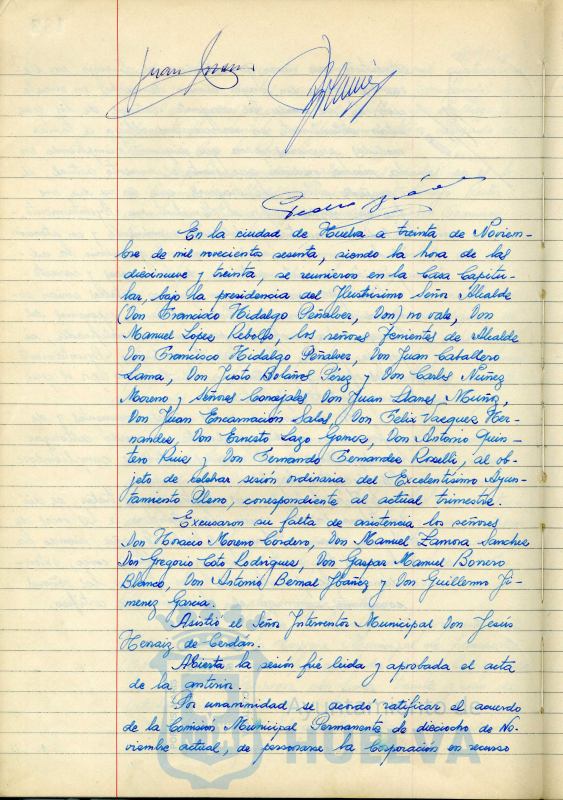 Juan
En la ciudad de Huelva a treinta de Noviem-
bre de mil novecientos sesenta, siendo la hora de las
diecinueve y treinta, se reunieron en la Casa Capitu-
lar, bajo la presidencia del Ilustrísimo Señor Alcalde
(Don Francisco Hidalgo Peñalver, Don) no vale, Don
Manuel López Rebollo, los señores Tenientes de Alcalde
Don Francisco Hidalgo Peñalver, Don Juan Caballero
Lama, Don Justo Bolaños Pérez y Don Carlos Núñez
Moreno y señores Concejales Don Juan Llanes Muñoz,
Don Juan Encarnación Salas, Don Felix Vazquez Her-
nandez, Don Ernesto Lazo Gomez, Don Antonio Quin-
tero Ruiz y Don Fernando Fernandez Roselli, al ob-
jeto de celebrar sesión ordinaria del Excelentísimo Ayun-
tamiento Pleno, correspondiente al actual trimestre.
Excusaron su falta de asistencia los señores
Don Horacio Moreno Cordero, Don Manuel Zamora Sanchez
Don Gregorio Coto Rodriguez, Don Gaspar Manuel Bonero
Blanco, Don Antonio Bernal Ybáñez y Don Guillermo Ji-
menez Garcia.
Asistió el Señor Interventor Municipal Don Jesús
Hernaiz de Cerdán.
Abierta la sesión fué leida y aprobada el acta
de la anterior.
Por unanimidad se acordó ratificar el acuerdo
de la Comisión Municipal Permanente de dieciocho de No-
viembre actual, de personarse la Corporación en recurso
HUELVA